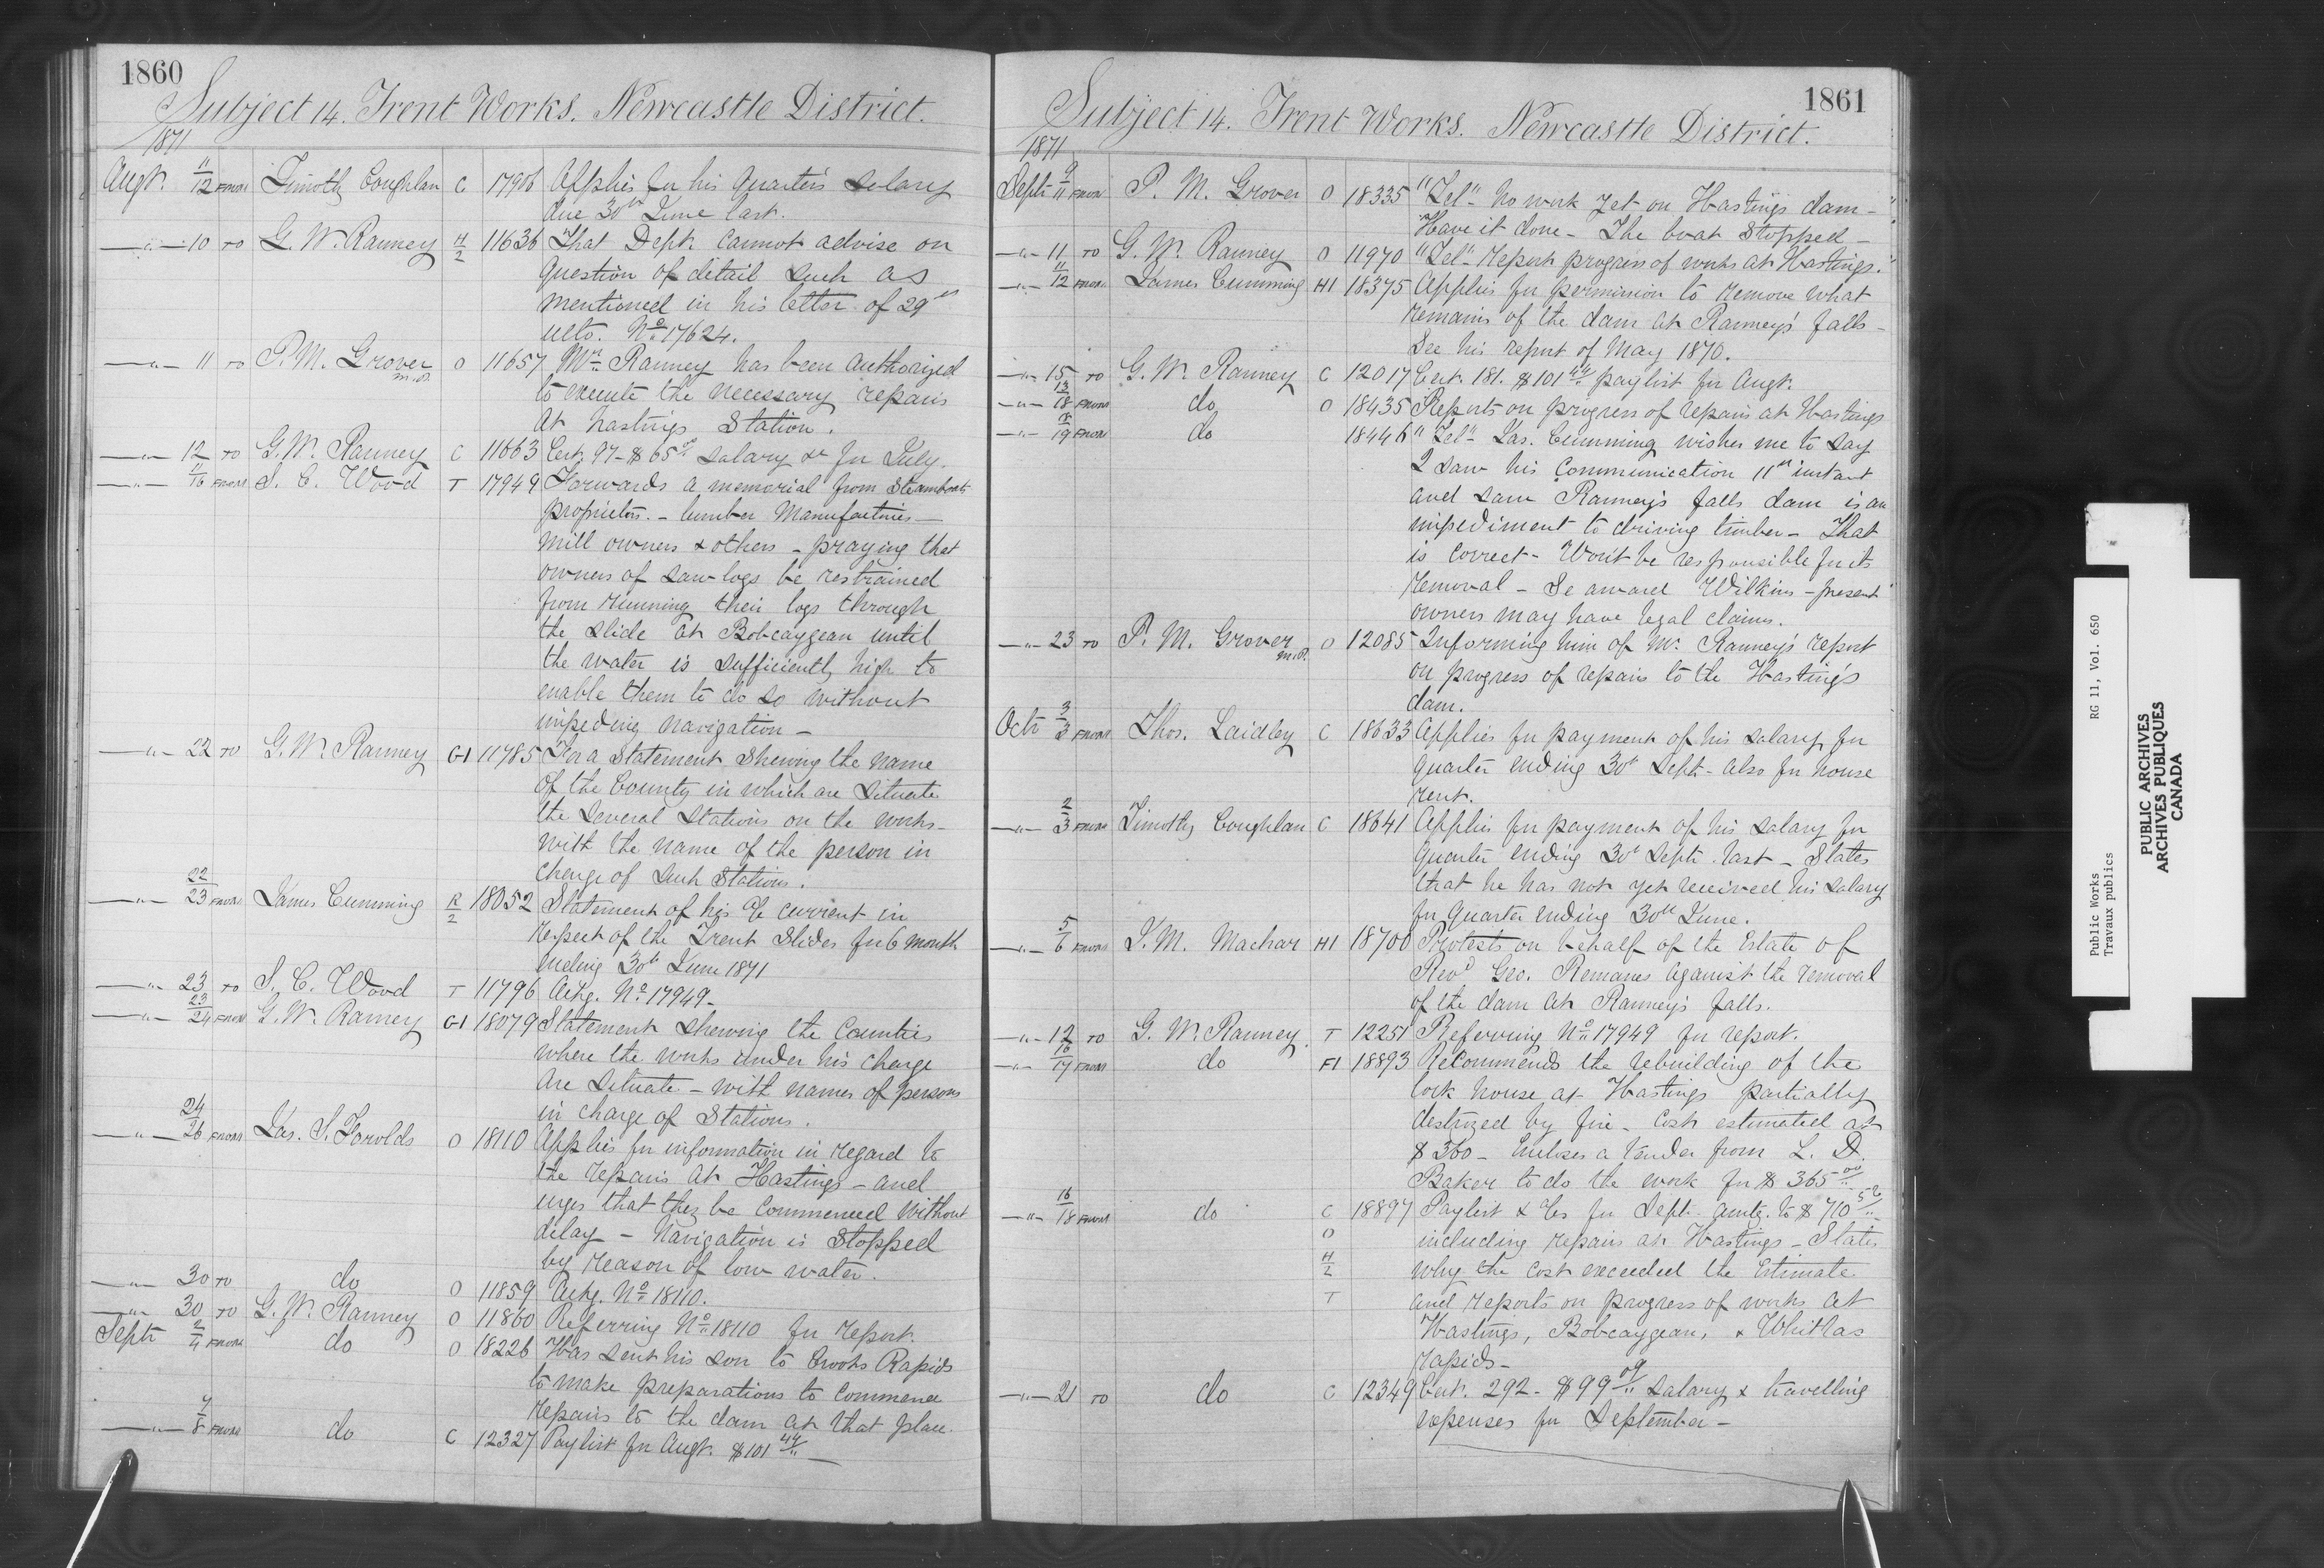 1860
Subject 14. Trent Works. Newcastle District.
1871
Augt. 11/12 FROM Timothy Coughlan C 17906 Applies for his Quarter's salary
due 30th June last.
—"— 10 TO G. W. Ranney H/2 11636 That Dept. cannot advise on
question of detail such as
mentioned in his letter of 29th
ulto. No. 17624.
—"— 11 TO P. M. Grover M.P. O 11657 Mr. Ranney has been authorized
to execute the necessary repairs
at Hastings Station.
—"— 12 TO G. W. Ranney C 11663 Cert. 97 - $65 00/" salary &c for July.
—"— 11/16 FROM S. C. Wood T 17949 Forwards a memorial from Steamboat
proprietors - lumber manufactories -
Mill owners & others - praying that
owners of saw logs be restrained
from running their logs through
the slide at Bobcaygean until
the water is sufficiently high to
enable them to do so without
impeding navigation -
—"— 22 TO G. W. Ranney G1 11785 For a Statement shewing the name
of the County in which are situate
the several stations on the works -
with the name of the person in
charge of such stations.
—"— 22/23 FROM James Cumming R/2 18052 Statement of his a/c current in
respect of the Trent Slides for 6 month
ending 30th June 1871
—"— 23 TO S. C. Wood T 11796 Ackg. No. 17949 -
—"— 23/24 FROM G. W. Ranney G1 18079 Statement shewing the Counties
where the works under his charge
are situate - with names of persons
in charge of Stations.
—"— 24/26 FROM Jas. S. Forolds O 18110 Applies for information in regard to
the repairs at Hastings - and
urges that they be commenced without
delay - Navigation is stopped
by reason of low water.
—"— 30 TO do O 11859 Ackg. No. 18110.
—"— 30 TO G. W. Ranney O 11860 Referring No. 18110 for report.
Septr 2/4 FROM do O 18226 Has sent his son to Crooks Rapids
to make preparations to commence
repairs to the dam at that place.
—"— 7/8 FROM do C 12327 Paylist for Augt. $101 44/" —
1861
Subject 14. Trent Works. Newcastle District.
1871
Septr 9/11 FROM P. M. Grover O 18335 "Tel" No work yet on Hastings dam -
Have it done - The boat stopped - "
—"— 11 TO G. W. Ranney O 11970 "Tel" Report progress of works at Hastings."
—"— 11/12 FROM James Cumming H1 18375 Applies for permission to remove what
remains of the dam at Ranney's falls -
See his report of May 1870.
—"— 15 TO G. W. Ranney C 12017 Cert. 181. $101 44/" paylist for Augt.
—"— 13/18 FROM do O 18435 Reports on progress of repairs at Hastings
—"— 18/19 FROM do 18446 "Tel" Jas. Cumming wishes me to say
I saw his communication 11th instant
and saw Ranney's falls dam is an
impediment to driving timber - That
is correct - Won't be responsible for its
removal - Se award Wilkins - present
owners may have legal claims.
—"— 23 TO P. M. Grover M.P. O 12085 Informing him of Mr. Ranney's report
on progress of repairs to the Hasting's
dam.
Octr 3/3 FROM Thos. Laidley C 18633 Applies for payment of his salary for
quarter ending 30th Septr - also for house
rent.
—"— 2/3 FROM Timothy Coughlan C 18641 Applies for payment of his salary for
quarter ending 30th Septr. last - States
that he has not yet received his salary
for Quarter ending 30th June.
—"— 5/6 FROM J. M. Machar H1 18700 Protests on behalf of the Estate of
Revd Geo. Romanes against the removal
of the dam at Ranney's falls.
—"— 12 TO G. W. Ranney T 12251 Referring No. 17949 for report.
—"— 16/17 FROM do F1 18893 Recommends the rebuilding of the
lock house at Hastings partially
destroyed by fire - Cost estimated at
$360 - Encloses a tender from L. D.
Baker to do the work for $365 00/"
—"— 16/18 FROM do C 18897 Paylist & a/cs for Septr. amtg. to $710 52/"
O including repairs at Hastings - States
H/2 why the cost exceeded the Estimate
T and reports on progress of works at
Hastings, Bobcaygean, & Whitlas
rapids -
—"— 21 TO do C 12349 Cert. 292 - $99 09/" salary & travelling
expenses for September -
Public Works RG 11, Vol. 650
Travaux publics
PUBLIC ARCHIVES
ARCHIVES PUBLIQUES
CANADA